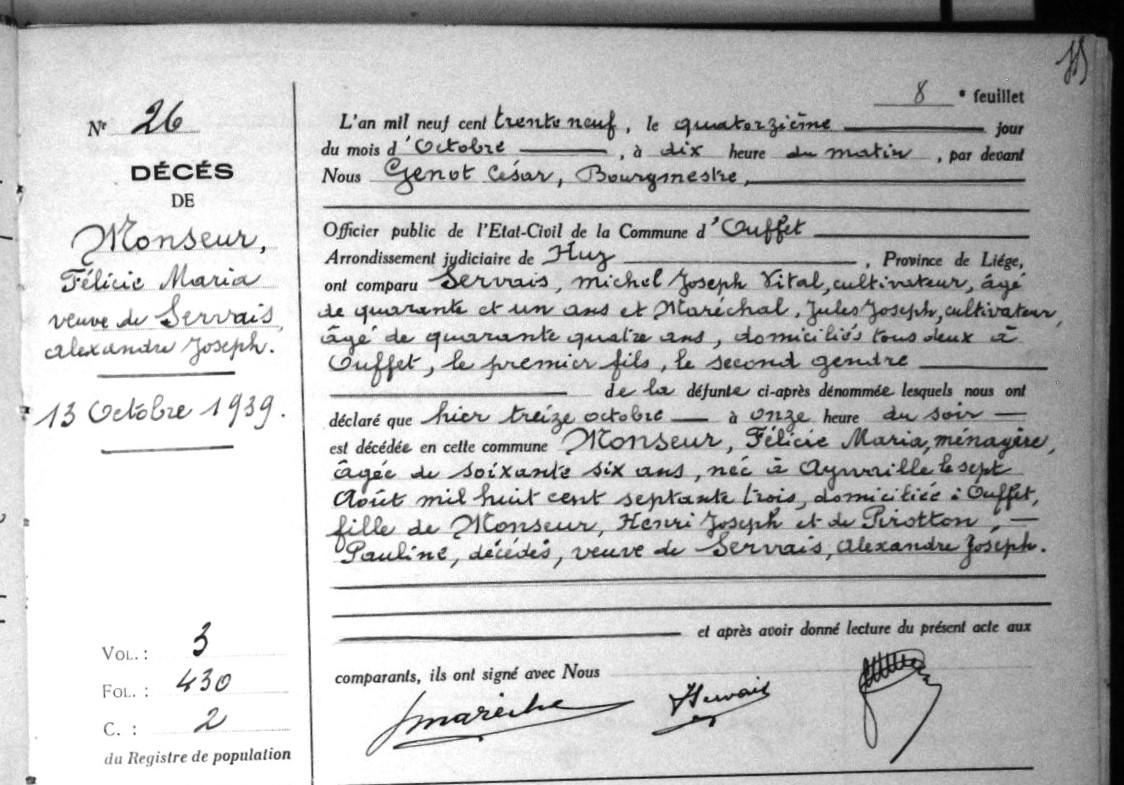 8e feuillet
Nr 26
DÉCÉS
DE
Monseur,
Félicie Maria
veuve de Servais,
Alexandre Joseph.
13 Octobre 1939.
VOL. : 3
FOL. : 430
C. : 2
du Registre de population
L'an mil neuf cent trente neuf, le quatorzième jour
du mois d'Octobre, à dix heure du matin, par devant
Nous Genot César, Bourgmestre,
Officier public de l'Etat-Civil de la Commune d'Ouffet
Arrondissement judiciaire de Huy, Province de Liége,
ont comparu Servais, Michel Joseph Vital, cultivateur, âgé
de quarante et un ans et Maréchal, Jules Joseph, cultivateur,
âgé de quarante quatre ans, domiciliés tous deux à
Ouffet, le premier fils, le second gendre
de la défunte ci-après dénommée lesquels nous ont
déclaré que hier treize octobre à onze heure du soir
est décédée en cette commune Monseur, Félicie Maria, ménagère,
âgée de soixante six ans, née à le sept
Août mil huit cent septante trois, domiciliée à Ouffet,
fille de Monseur, Henri Joseph et de Pirotton,
Pauline, décédés, veuve de Servais, Alexandre Joseph.
et après avoir donné lecture du présent acte aux
comparants, ils ont signé avec Nous